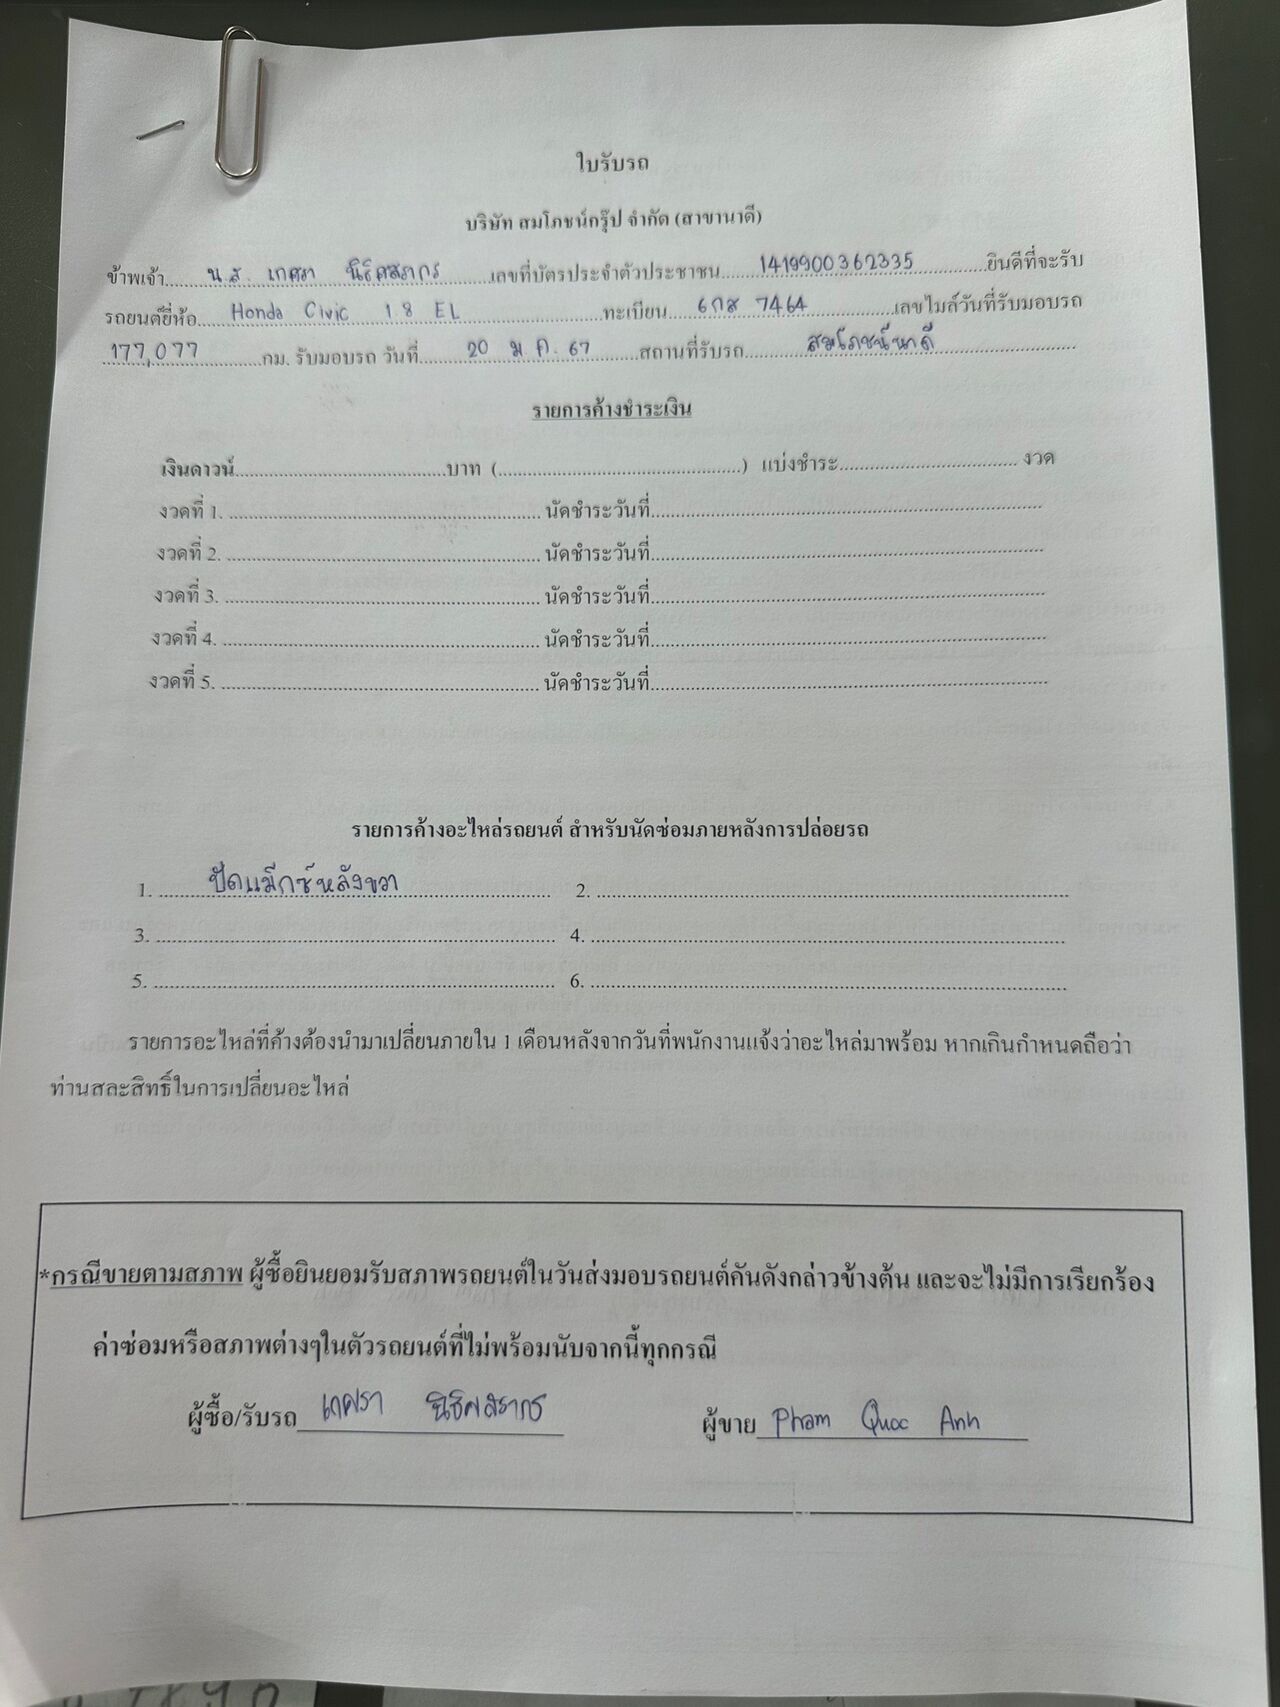 ใบรับรถ
บริษัท สมโภชน์กรุ๊ป จำกัด (สาขานาดี)
ข้าพเจ้า น.ส. เกศรา นิธิศสรากร เลขที่บัตรประจำตัวประชาชน 1419900362335 ยินดีที่จะรับ
รถยนต์ยี่ห้อ Honda Civic 1.8 EL ทะเบียน 6กส 7464 เลขไมล์วันที่รับมอบรถ
177,077 กม. รับมอบรถ วันที่ 20 ม.ค. 67 สถานที่รับรถ สมโภชน์นาดี
รายการค้างชำระเงิน
เงินดาวน์ บาท ( ) แบ่งชำระ งวด
งวดที่ 1. นัดชำระวันที่
งวดที่ 2. นัดชำระวันที่
งวดที่ 3. นัดชำระวันที่
งวดที่ 4. นัดชำระวันที่
งวดที่ 5. นัดชำระวันที่
รายการค้างอะไหล่รถยนต์ สำหรับนัดซ่อมภายหลังการปล่อยรถ
1. ปัดแม็กซ์หลังขวา 2.
3. 4.
5. 6.
รายการอะไหล่ที่ค้างต้องนำมาเปลี่ยนภายใน 1 เดือนหลังจากวันที่พนักงานแจ้งว่าอะไหล่มาพร้อม หากเกินกำหนดถือว่า
ท่านสละสิทธิ์ในการเปลี่ยนอะไหล่
*กรณีขายตามสภาพ ผู้ซื้อยินยอมรับสภาพรถยนต์ในวันส่งมอบรถยนต์คันดังกล่าวข้างต้น และจะไม่มีการเรียกร้อง
ค่าซ่อมหรือสภาพต่างๆในตัวรถยนต์ที่ไม่พร้อมนับจากนี้ทุกกรณี
ผู้ซื้อ/รับรถ เกศรา นิธิศสรากร ผู้ขาย Pham Quoc Anh